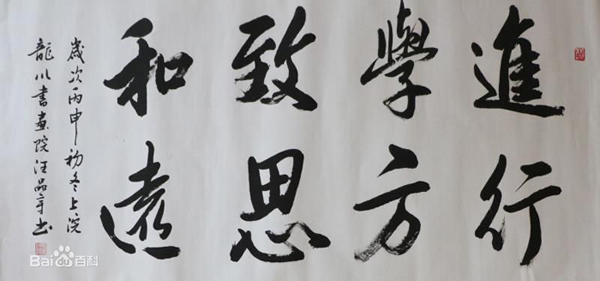 進行
學方
致思
和遠
歲次丙申初冬上浣
龍川書畫院汪品书
Bai du 百科